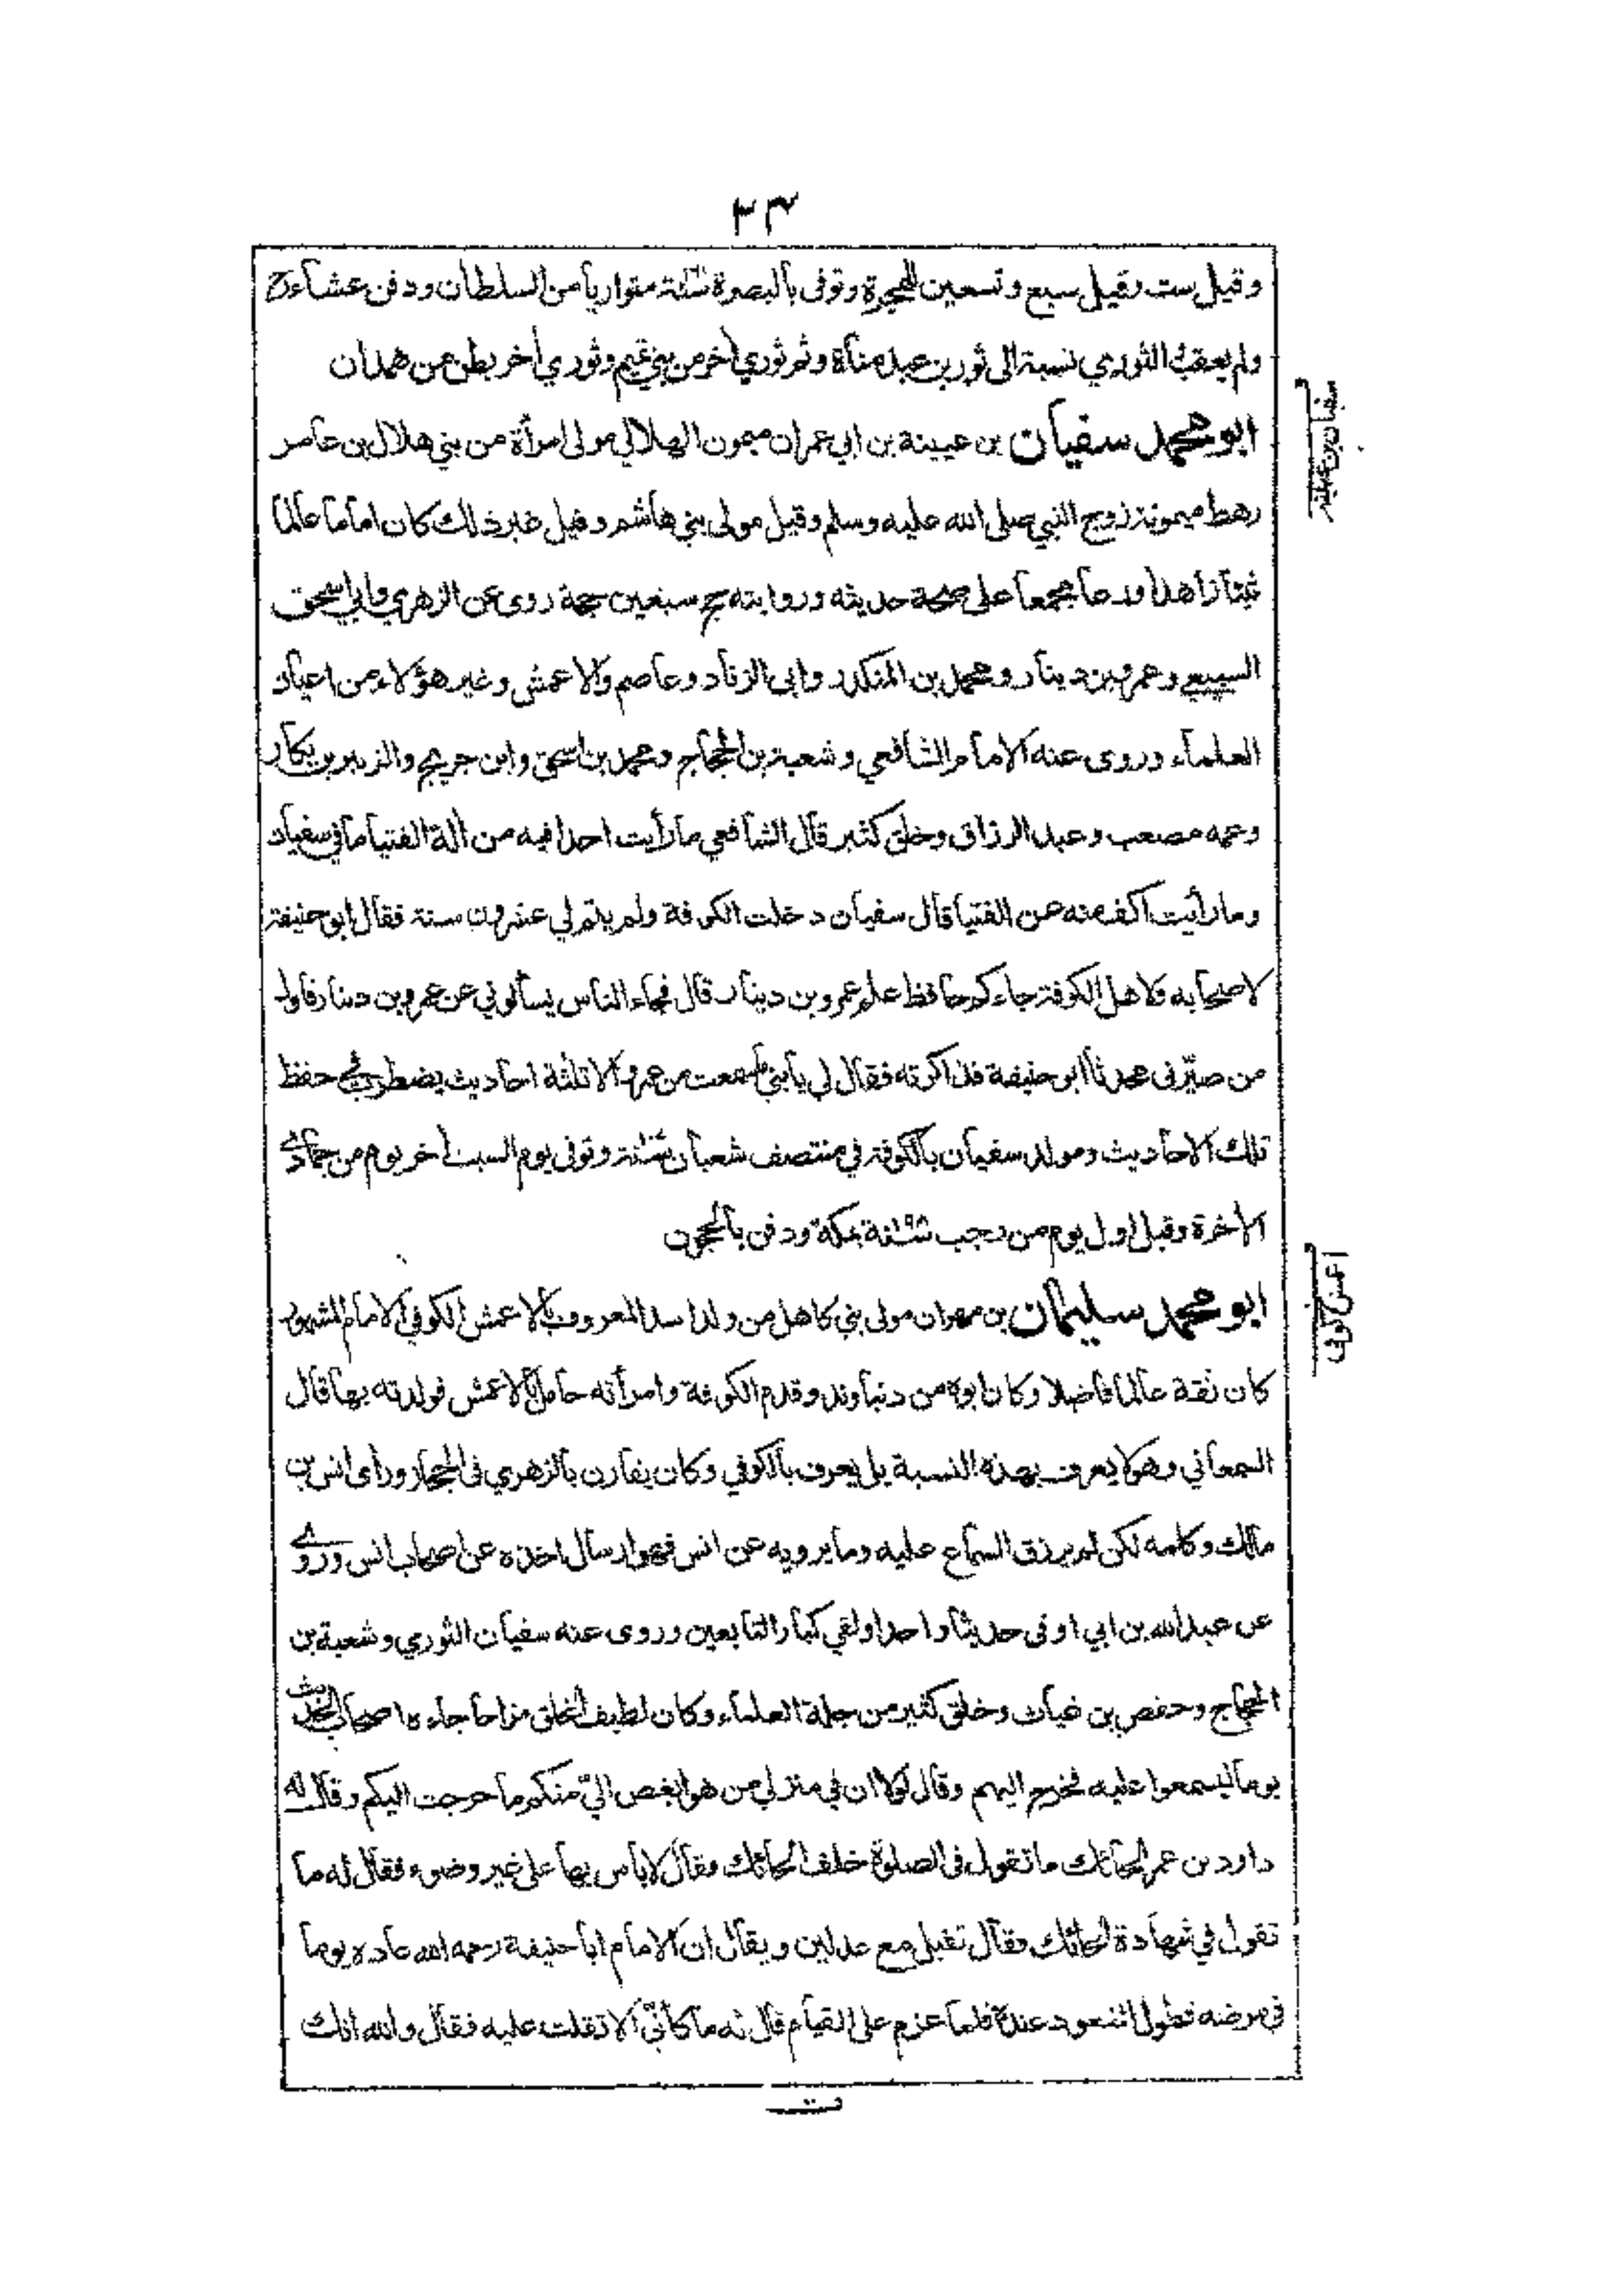 ٣٣
وقيل ست وقيل سبع وتسعين للهجرة وتوفى بالبصرة متواريا من السلطان ودفن عشاء رح
ولم يعقب الثوري نسبة الى ثور بن عبد مناة وثم ثوري اخر من بني تميم وثوري اخر بطن من همدان
ابو محمد سفيان بن عيينة بن ابي عمران ميمون الهلالي مولى امرأة من بني هلال بن عامر
سفيان بن عيينه
رهط ميمونة زوج النبي صلى الله عليه وسلم وقيل مولى بني هاشم وقيل غير ذلك كان اماما عالما
ثبتا زاهدا ورعا مجمعا على صحة حديثه وروايته حج سبعين حجة روى عن الزهري وابي اسحق
السبيعي وعمرو بن دينار ومحمد بن المنكدر وابى الزناد وعاصم والاعمش وغير هؤلاء من اعيان
العلماء وروى عنه الامام الشافعي وشعبة بن الحجاج ومحمد بن اسحق وابن جريج والزبير بن بكار
وعمه مصعب وعبد الرزاق وخلق كثير قال الشافعي ما رأيت احدا فيه من آلة الفتيا ما في سفيان
وما رأيت اكف منه عن الفتيا قال سفيان دخلت الكوفة ولم يتم لي عشرون سنة فقال ابو حنيفة
لاصحابه ولاهل الكوفة جاءكم حافظ علم عمرو بن دينار قال فجاء الناس يسألوني عن عمرو بن دينار فاول
من صيّرنى محدثا ابو حنيفة فذاكرته فقال لي يا بني ما سمعت من عمرو الا ثلثة احاديث يضطرب في حفظ
تلك الاحاديث ومولد سفيان بالكوفة في منتصف شعبان وتوفى يوم السبت اخر يوم من جمادى
الاخرة وقيل اول يوم من رجب ١٩٨ـنة بمكة ودفن بالحجون
ابو محمد سليمان بن مهران مولى بني كاهل من ولد اسد المعروف بالاعمش الكوفي الامام المشهور
اعمش كوفى
كان ثقة عالما فاضلا وكان ابوه من دنباوند وقدم الكوفة وامرأته حامل بالاعمش فولدته بها قال
السمعاني وهو لا يعرف بهذه النسبة بل يعرف بالكوفي وكان يقارن بالزهري فى الحجاز ورأى انس بن
مالك وكلمه لكن لم يرزق السماع عليه وما يرويه عن انس فهو ارسال اخذه عن اصحاب انس وروى
عن عبد الله بن ابي اوفى حديثا واحدا ولقي كبار التابعين وروى عنه سفيان الثوري وشعبة بن
الحجاج وحفص بن غياث وخلق كثير من جلة العلماء وكان لطيف الخلق مزاحا جاءه اصحاب الحديث
يوما ليسمعوا عليه فخرج اليهم وقال لولا ان في منزلي من هو ابغض اليّ منكم ما خرجت اليكم وقال له
داود بن عمر الحائك ما تقول فى الصلوة خلف الحائك فقال لا باس بها على غير وضوء فقال له ما
تقول في شهادة الحائك فقال تقبل مع عدلين ويقال ان الامام ابا حنيفة رحمه الله عاده يوما
فى مرضه فطول القعود عنده فلما عزم على القيام قال له ما كأنّي الا ثقلت عليك فقال والله انك